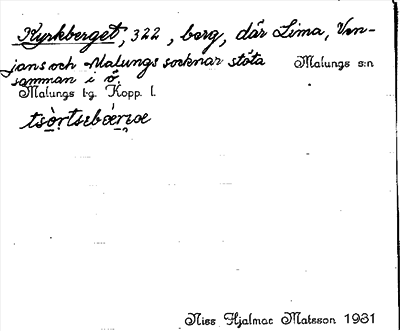 Kyrkberget, 322, berg, där Lima, Ven-
jans och Malungs socknar stöta
samman i ö.
Malungs s:n
Malungs t.g. Kopp. l.
Uies Hjalmar Matsson 1931